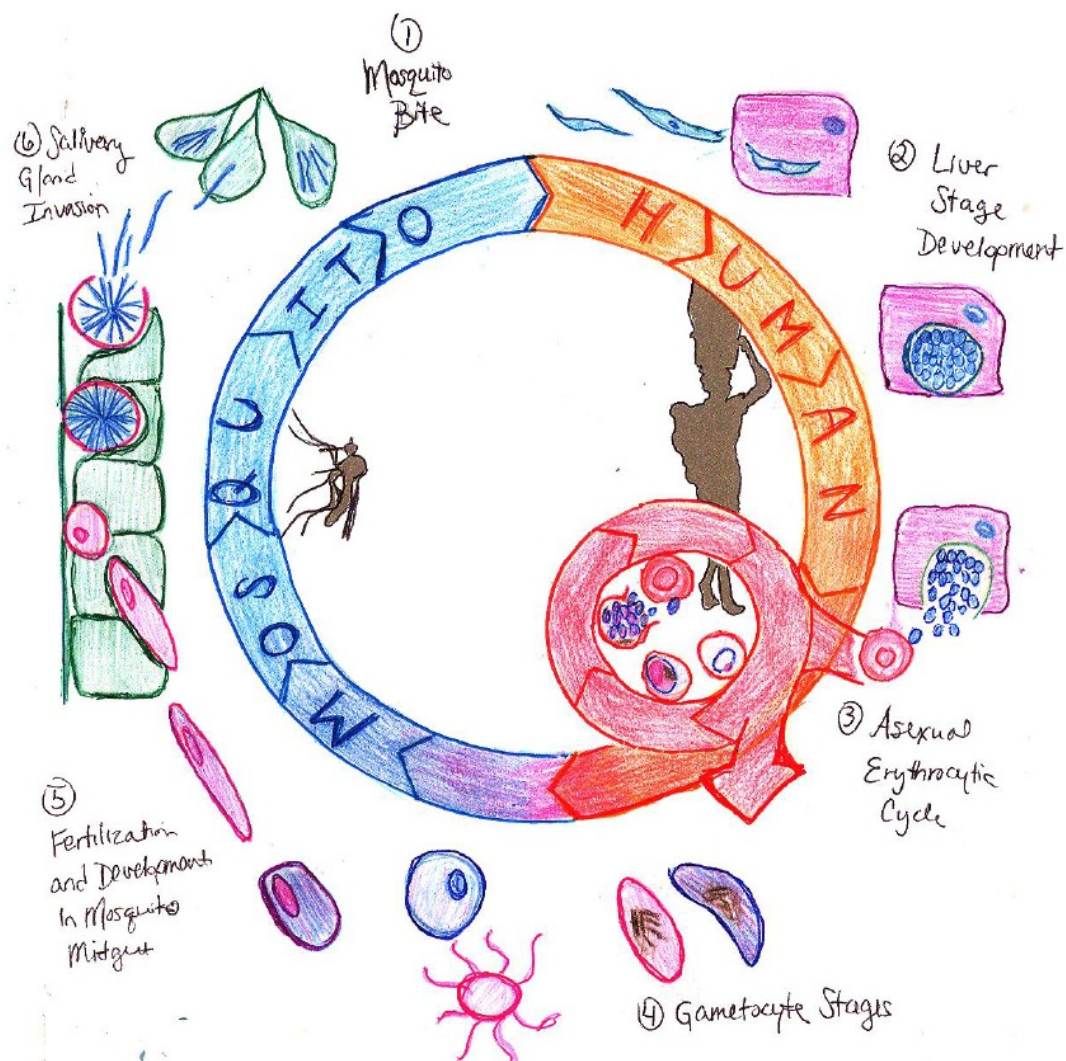 ①
Mosquito
Bite
② Liver
Stage
Development
③ Asexual
Erythrocytic
Cycle
④ Gametocyte Stages
⑤
Fertilization
and Development
In Mosquito
Midgut
⑥ Salivery
Gland
Invasion
HUMAN
MOSQUITO